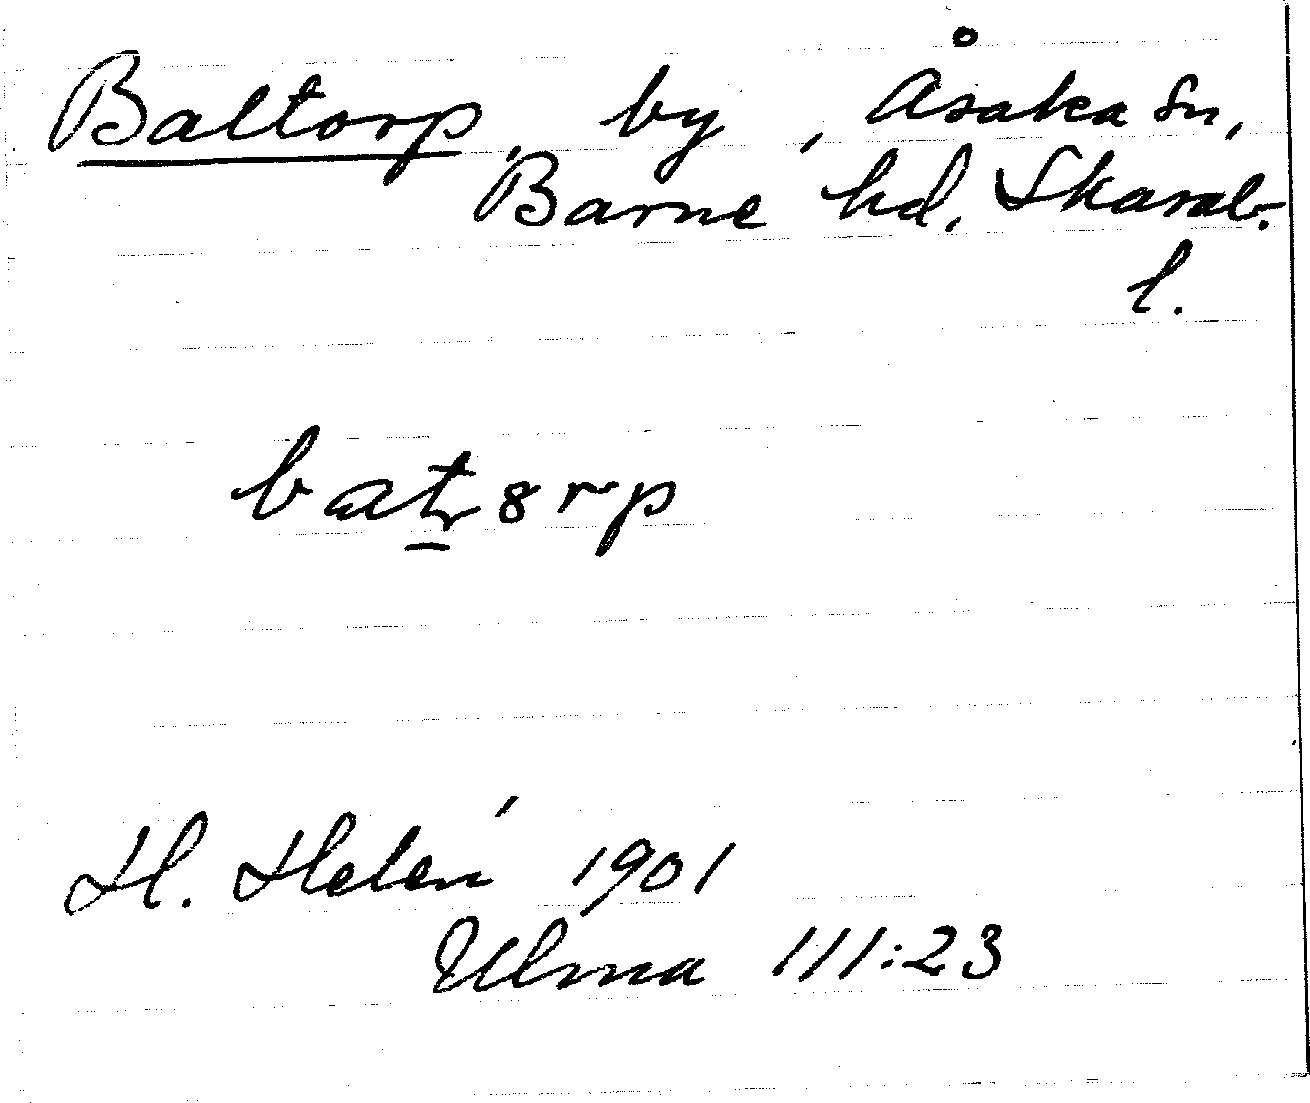 Baltorp, by, Åsaka sn,
Barne hd, Skarab.
l.
H. Helén 1901
Ulma 111:23